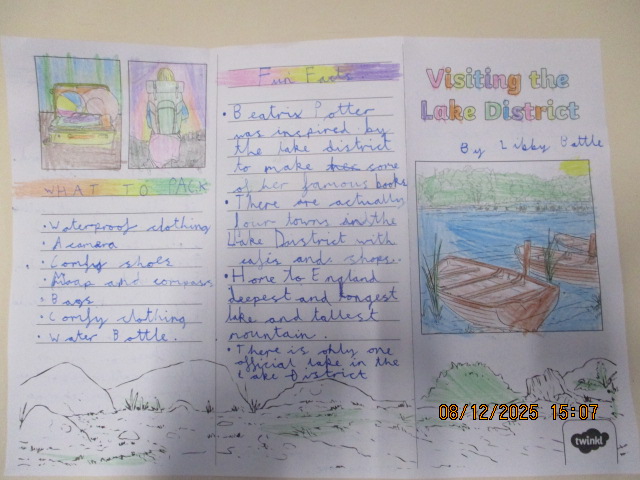 WHAT TO PACK
• Waterproof clothing
• A camara
• Comfy shoes
• Map and compass
• Bags
• Comfy clothing
• Water Bottle.
Fun Facts
• Beatrix Potter
was inspired by
the lake district
to make some
of her famous books
• There are actually
four towns in the
Lake District with
cafis and shops.
• Home to England
deepest and longest
lake and tallest
mountain.
• There is only one
official lake in the
Lake District
Visiting the
Lake District
By Libby Bottle
08/12/2025 15:07
twinkl